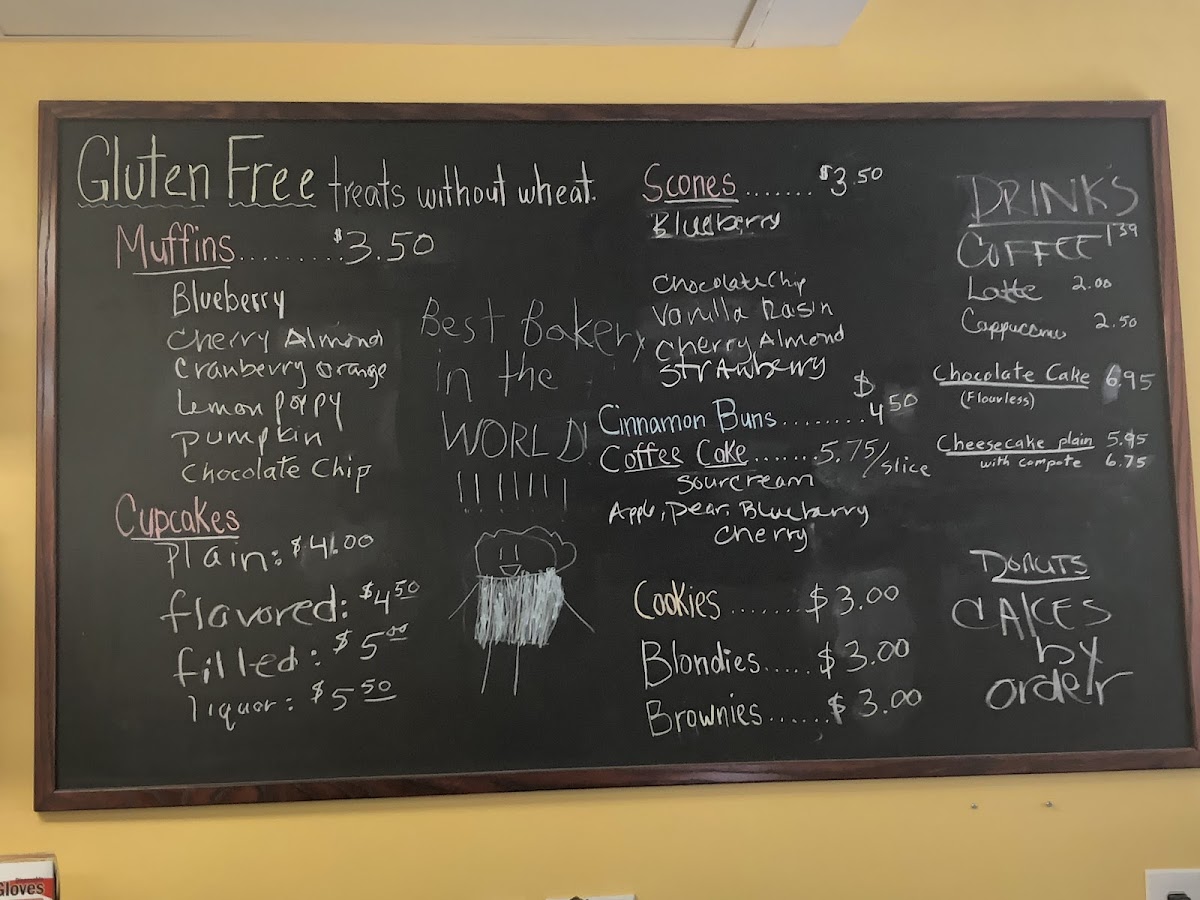 Gluten Free treats without wheat.
Muffins.........$3.50
Blueberry
Cherry Almond
Cranberry orange
Lemon poppy
pumpkin
Chocolate Chip
Cupcakes
Plain: $4.00
flavored: $4.50
filled: $5.00
liquor: $5.50
Best Bakery
in the
WORLD
!!!!!!!
Scones.......$3.50
Blueberry
Chocolate Chip
Vanilla Raisin
Cherry Almond
Strawberry
Cinnamon Buns........$4.50
Coffee Cake.......5.75/slice
sourcream
Apple, Pear, Blueberry
Cherry
Cookies.......$3.00
Blondies.....$3.00
Brownies......$3.00
DRINKS
COFFEE 1.39
Latte 2.00
Cappuccino 2.50
Chocolate Cake 6.95
(Flourless)
Cheesecake plain 5.95
with compote 6.75
DONUTS
CAKES
by
order
Gloves